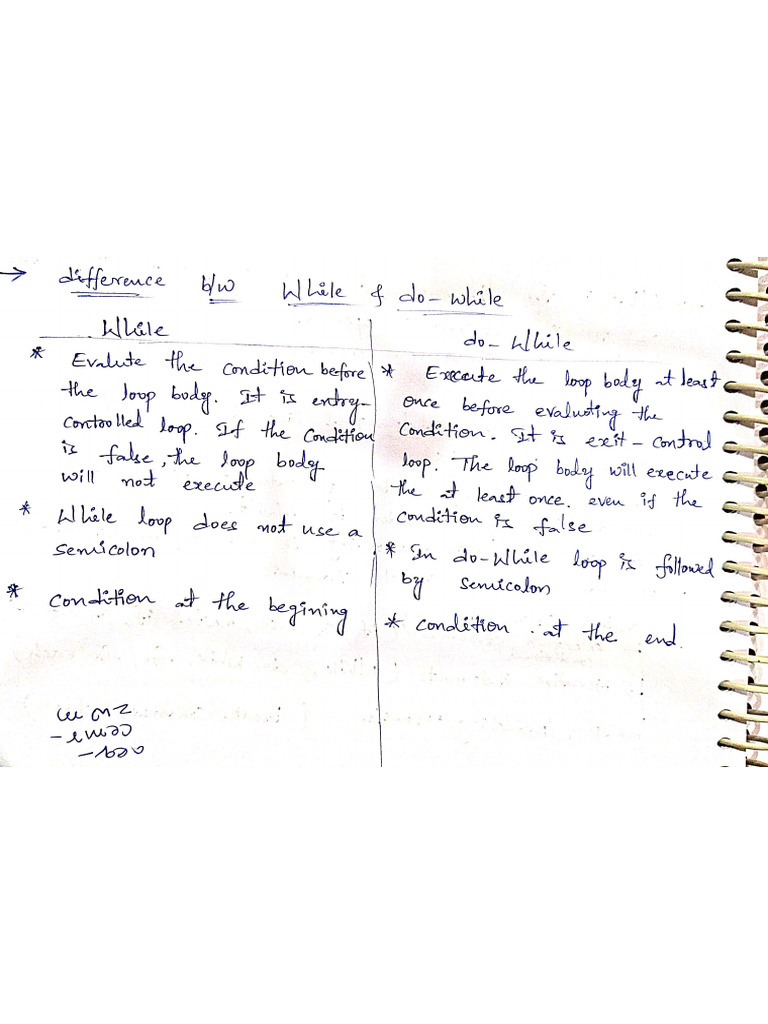 → difference b/w While & do-while
While
* Evalute the condition before
the loop body. It is entry-
controlled loop. If the condition
is false, the loop body
will not execute
* While loop does not use a
semicolon
* condition at the begining
do-While
* Execute the loop body at least
once before evaluting the
condition. It is exit-control
loop. The loop body will execute
the at least once. even if the
condition is false
* In do-While loop is followed
by semicolon
* condition at the end.